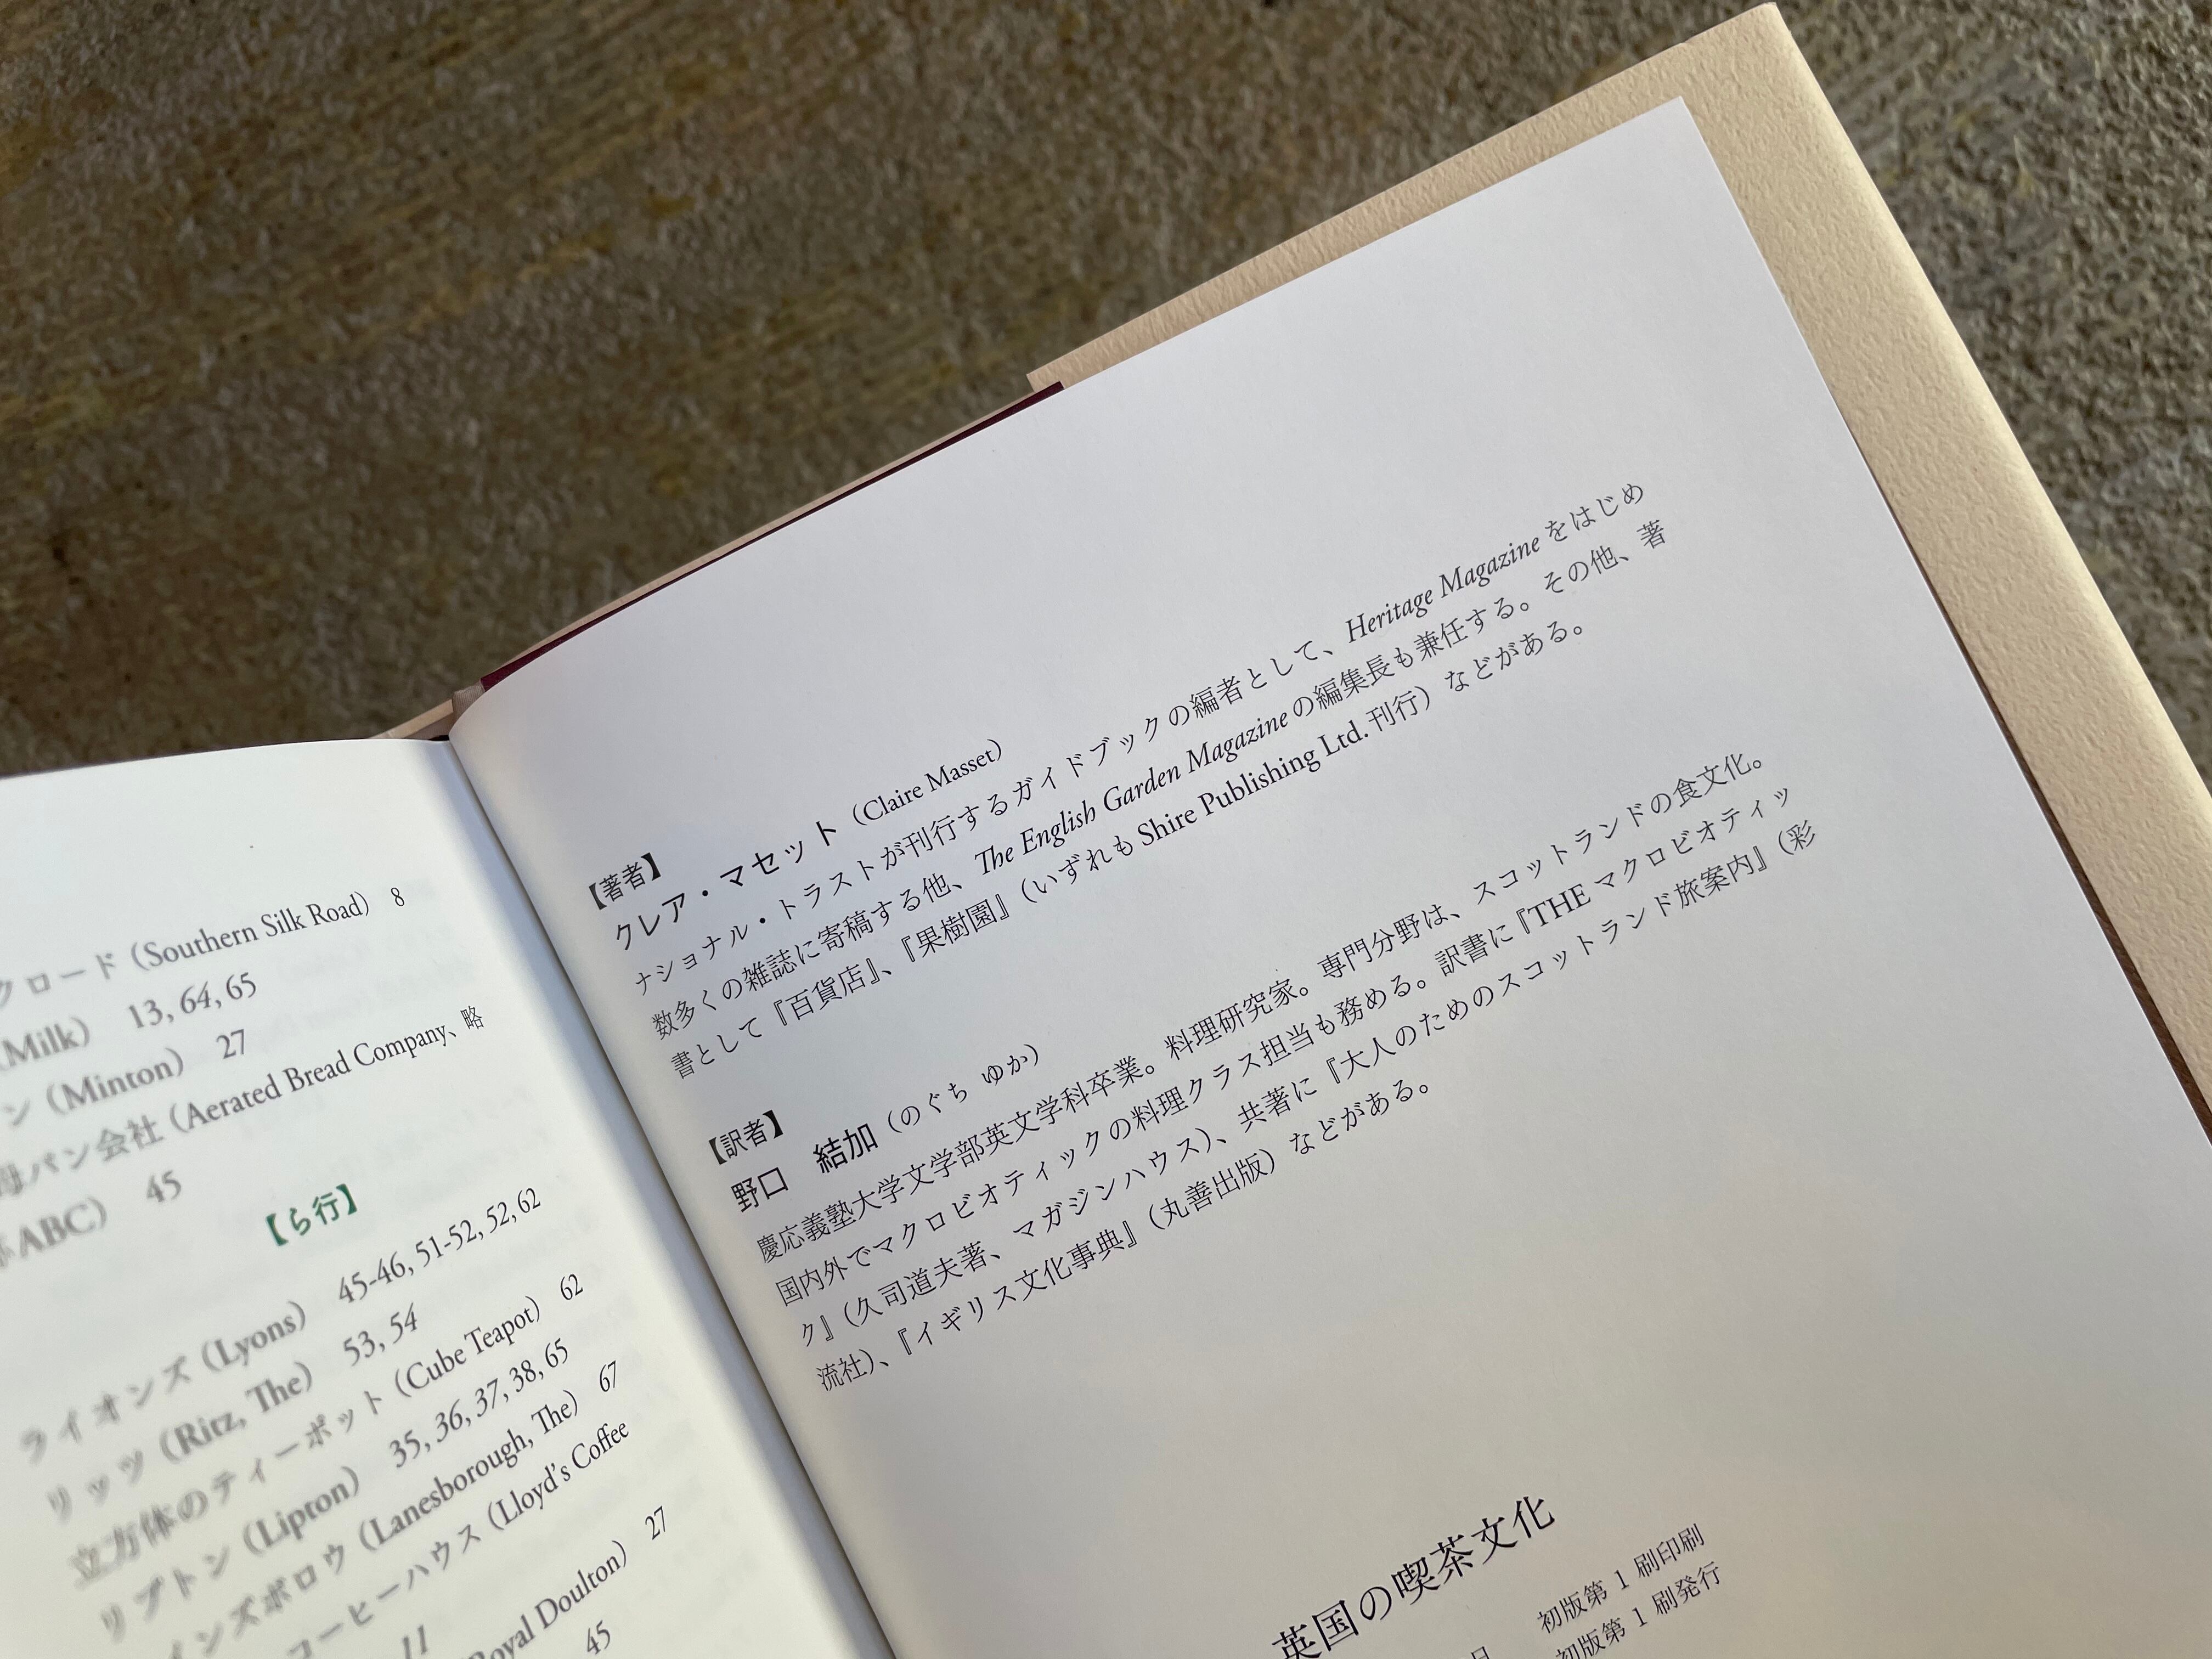 クロード（Southern Silk Road） 8
（Milk） 13, 64, 65
ン（Minton） 27
母パン会社（Aerated Bread Company、略
ABC） 45
【ら行】
ライオンズ（Lyons） 45-46, 51-52, 52, 62
リッツ（Ritz, The） 53, 54
立方体のティーポット（Cube Teapot） 62
リプトン（Lipton） 35, 36, 37, 38, 65
インズボロウ（Lanesborough, The） 67
コーヒーハウス（Lloyd's Coffee
11
Royal Doulton） 27
45
【著者】
クレア・マセット（Claire Masset）
ナショナル・トラストが刊行するガイドブックの編者として、Heritage Magazineをはじめ
数多くの雑誌に寄稿する他、The English Garden Magazineの編集長も兼任する。その他、著
書として『百貨店』、『果樹園』（いずれもShire Publishing Ltd. 刊行）などがある。
【訳者】
野口 結加（のぐち ゆか）
慶応義塾大学文学部英文学科卒業。料理研究家。専門分野は、スコットランドの食文化。
国内外でマクロビオティックの料理クラス担当も務める。訳書に『THE マクロビオティッ
ク』（久司道夫著、マガジンハウス）、共著に『大人のためのスコットランド旅案内』（彩
流社）、『イギリス文化事典』（丸善出版）などがある。
英国の喫茶文化
初版第 1 刷印刷
日 初版第 1 刷発行